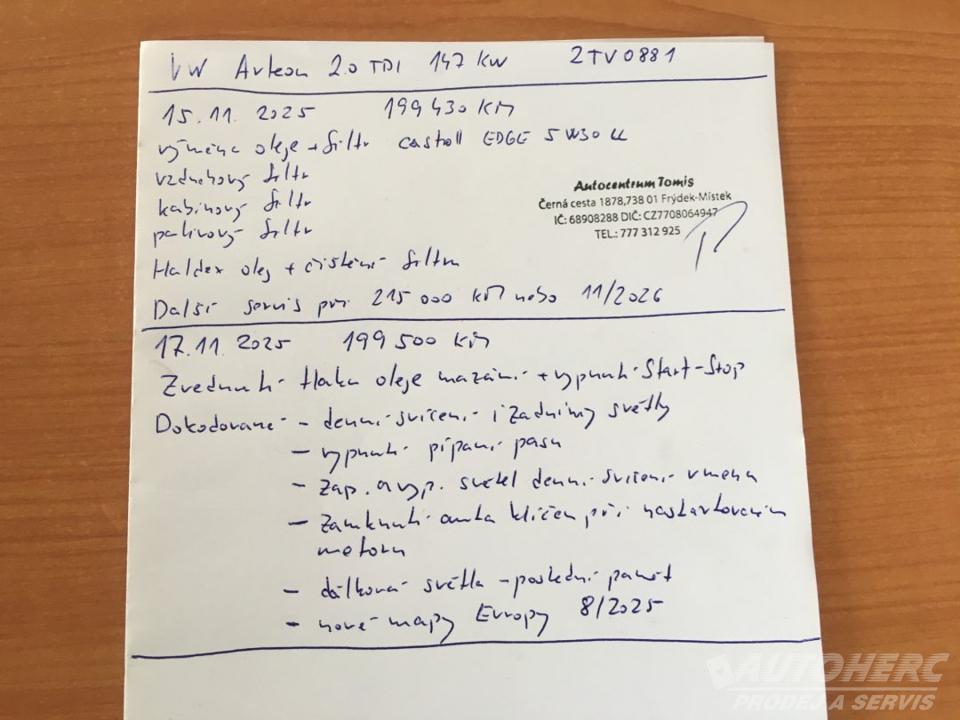 VW Arteon 2.0 TDI 147 KW 2TV0881
15.11.2025 199 430 KM
výměna oleje + filtr castroll EDGE 5W30 LL
vzduchový filtr
kabinový filtr
palivový filtr
Autocentrum Tomis
Černá cesta 1878,738 01 Frýdek-Místek
IČ: 68908288 DIČ: CZ7708064947
TEL.: 777 312 925
Haldex olej + čištění filtru
Další servis při 215 000 KM nebo 11/2026
17.11.2025 199 500 KM
Zvednutí tlaku oleje mazání + vypnutí Start-Stop
Dokodované - denní svícení i zadními světly
- vypnutí pípání pasu
- Zap. a vyp. světel denní svícení v menu
- Zamknutí auta klíčem při nastartovaném
motoru
- dálková světla - poslední paměť
- nové mapy Evropy 8/2025
AUTOHERC
PRODEJ A SERVIS